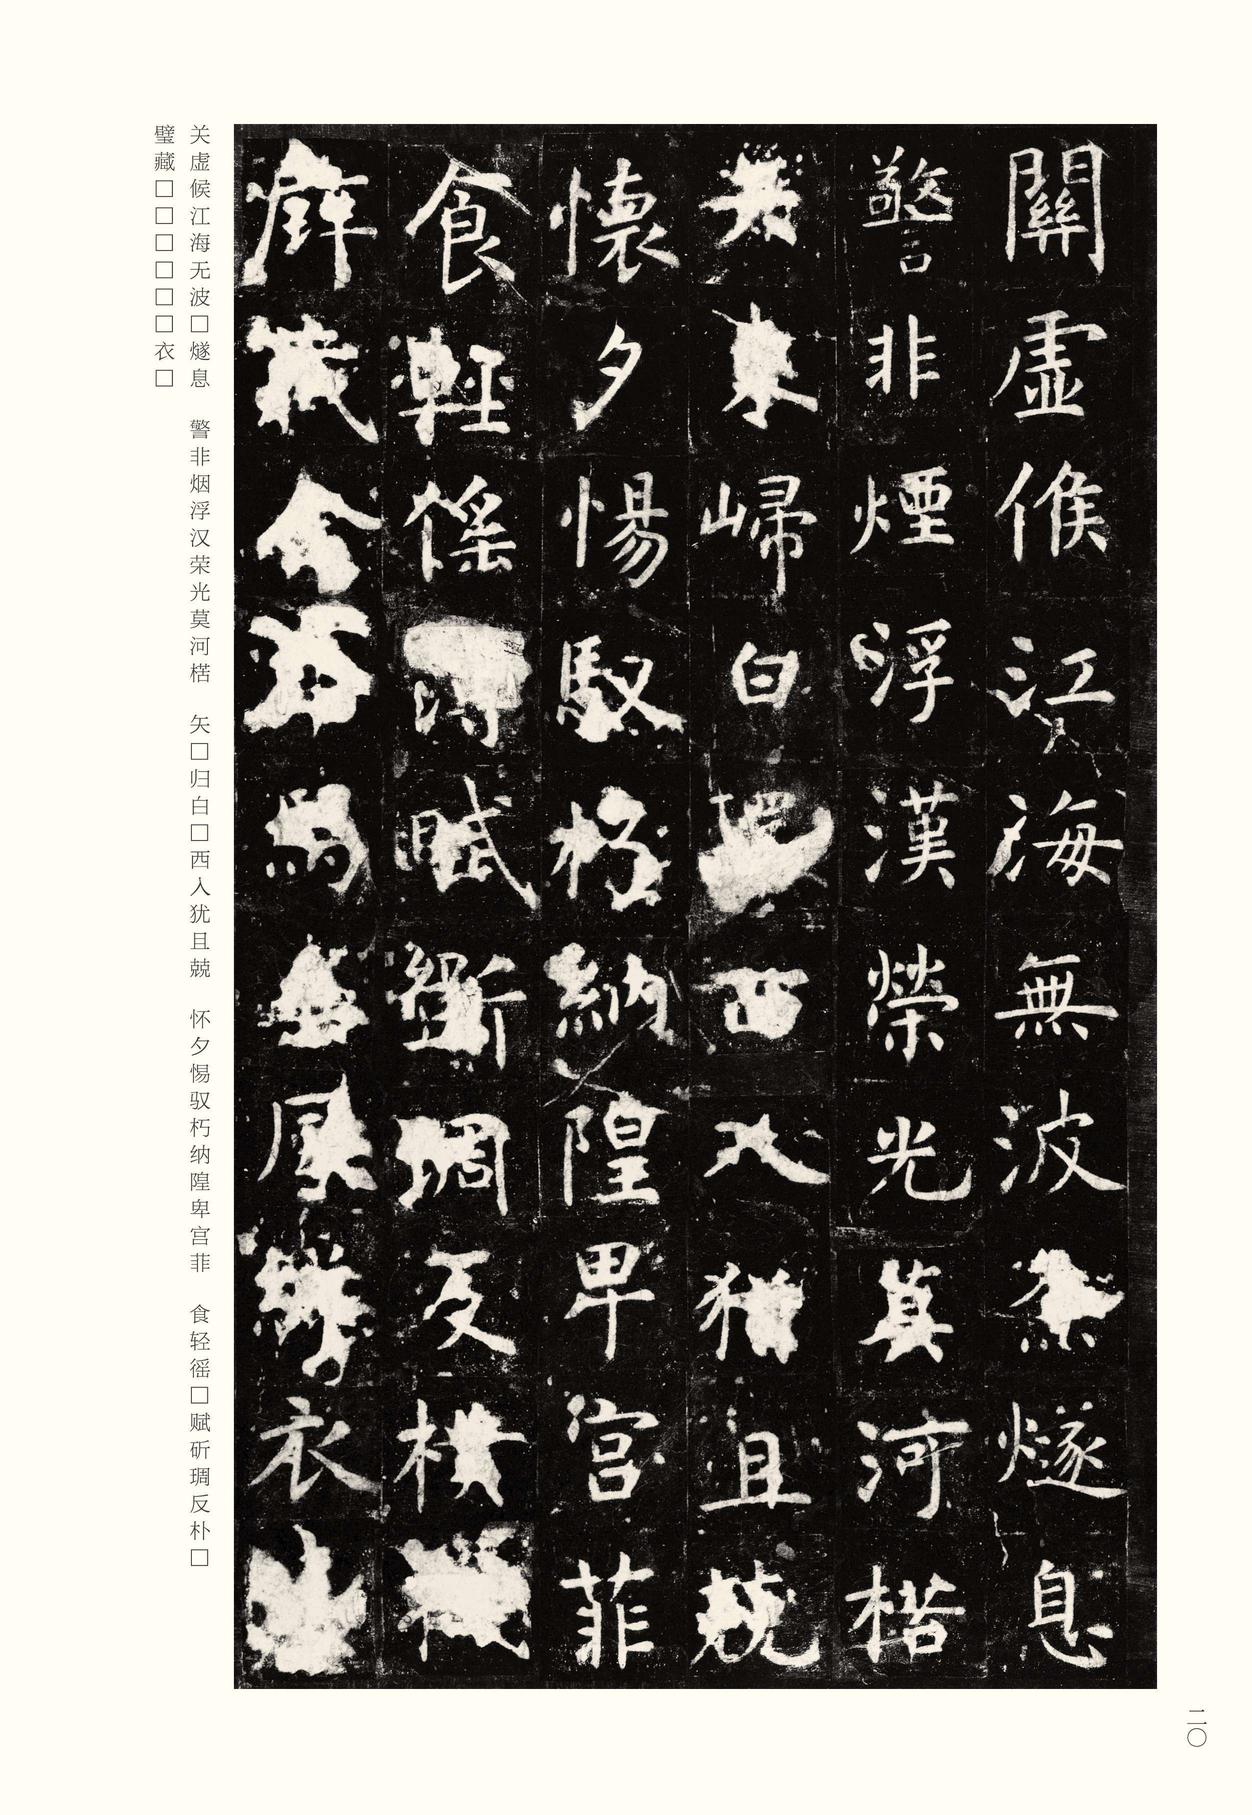 關虛候江海無波燧息
警非煙浮漢榮光莫河楛
矢歸白西人猶且兢
懷夕惕馭朽納隍卑宮菲
食輕徭賦斲琱反樸
璧藏衣
关虚候江海无波□燧息　警非烟浮汉荣光莫河楛　矢□归白□西人犹且兢　怀夕惕驭朽纳隍卑宫菲　食轻徭□赋斫琱反朴□
璧藏□□□□□□衣□
二〇